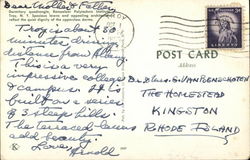 Dear Mother & Father
Dormitory quadrangle, Rensselaer Polytechnic Institute,
Troy, N. Y. Spacious lawns and appealing architecture
reflect the quiet dignity of the opposition dorms.
Troy is about 50
minutes driving
distance from
This is a very
impressive college
& campus. It is
built on a series
of 3 steep hills.
The terraced lawns
add beauty.
Love, Arnold
POST CARD
Address
THE HOMESTEAD
KINGSTON
RHODE ISLAND
LIBERTY
3¢